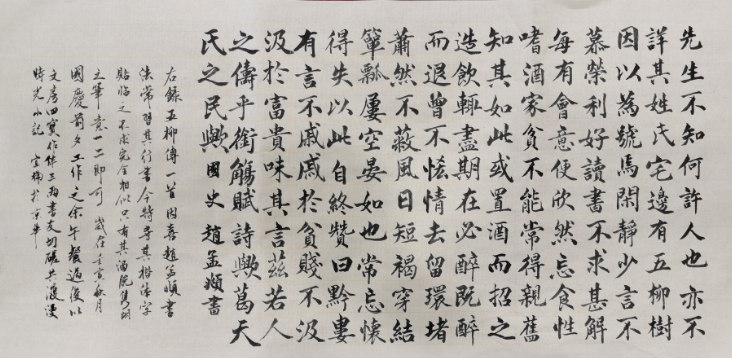 先生不知何許人也亦不
詳其姓氏宅邊有五柳樹
因以為號焉閑靜少言不
慕榮利好讀書不求甚解
每有會意便欣然忘食性
嗜酒家貧不能常得親舊
知其如此或置酒而招之
造飲輒盡期在必醉既醉
而退曾不恡情去留環堵
蕭然不蔽風日短褐穿結
簞瓢屢空晏如也常忘懷
得失以此自終贊曰黔婁
有言不戚戚於貧賤不汲
汲於富貴味其言茲若人
之儔乎銜觴賦詩歟葛天
氏之民歟國史趙孟頫書
右錄五柳傳一首因喜趙孟頫書
法常習其行書今特尋其楷法字
貼臨之不求完全相似只有其洒脫
之筆意一二即可歲在壬寅秋月
國慶前夕工作之余午餐過後以
文房四寶作伴三兩書友切磋共渡漫
時光小記